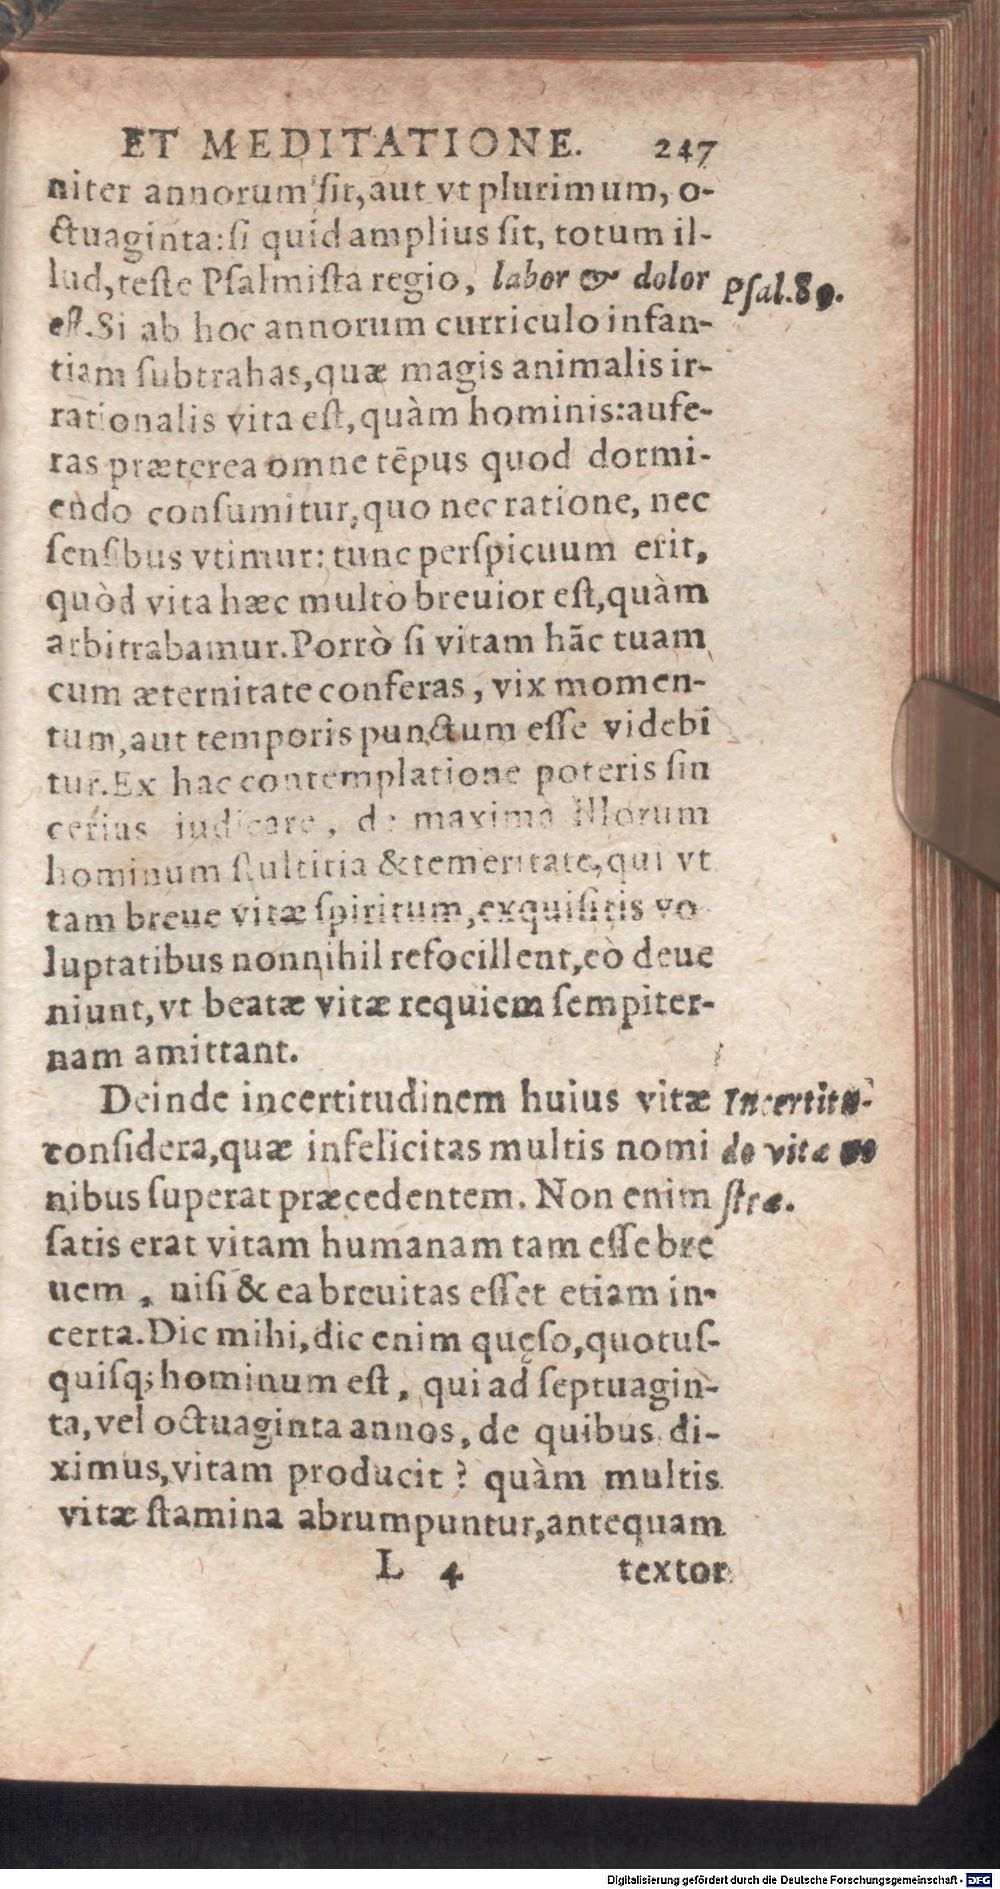 ET MEDITATIONE. 247
niter annorum ſit, aut vt plurimum, o-
ctuaginta: ſi quid amplius ſit, totum il-
lud, teſte Pſalmiſta regio, labor & dolor
Pſal. 89.
eſt. Si ab hoc annorum curriculo infan-
tiam ſubtrahas, quæ magis animalis ir-
rationalis vita eſt, quàm hominis: aufe-
ras præterea omne tẽpus quod dormi-
endo conſumitur, quo nec ratione, nec
ſenſibus vtimur: tunc perſpicuum erit,
quòd vita hæc multo breuior eſt, quàm
arbitrabamur. Porrò ſi vitam hãc tuam
cum æternitate conferas, vix momen-
tum, aut temporis punctum eſſe videbi
tur. Ex hac contemplatione poteris ſin
cerius iudicare, de maxima illorum
hominum ſtultitia & temeritate, qui vt
tam breue vitæ ſpiritum, exquiſitis vo
luptatibus nonnihil refocillent, eò deue
niunt, vt beatæ vitæ requiem ſempiter-
nam amittant.
Deinde incertitudinem huius vitæ
Incertitu-
conſidera, quæ infelicitas multis nomi
do vitæ no
nibus ſuperat præcedentem. Non enim
ſtræ.
ſatis erat vitam humanam tam eſſe bre
uem, niſi & ea breuitas eſſet etiam in-
certa. Dic mihi, dic enim quęſo, quotuſ-
quiſq; hominum eſt, qui ad ſeptuagin-
ta, vel octuaginta annos, de quibus di-
ximus, vitam producit? quàm multis
vitæ ſtamina abrumpuntur, antequam
L 4 textor
Digitalisierung gefördert durch die Deutsche Forschungsgemeinschaft - DFG